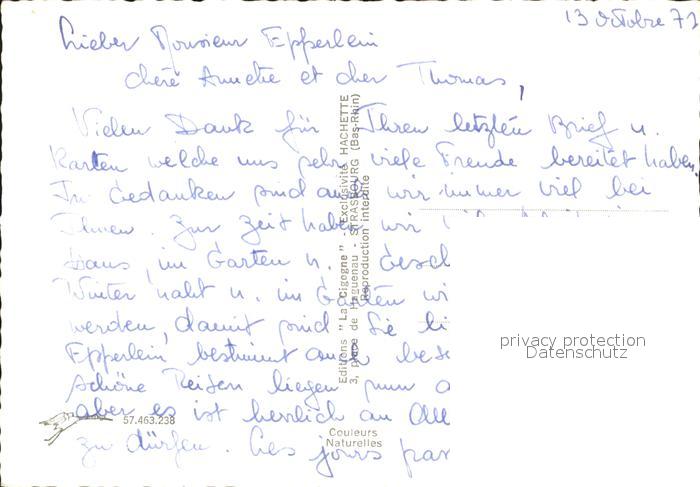 13 Octobre 71
Lieber Monsieur Epperlein
chère Annette et cher Thomas,
Vielen Dank für Ihren letzten Brief u.
Karten welche uns sehr viele Freude bereitet haben.
In Gedanken sind auch wir immer viel bei
Ihnen. Zur Zeit haben wir
Haus, im Garten u. Gesch
Winter naht u. im Garten wi
werden, damit sind Sie li
Epperlein bestimmt auch besc
schöne Reisen liegen nun
aber es ist herrlich an
zu dürfen. Les jours par
Editions "La Cigogne" - Exclusivité HACHETTE
3, place de Haguenau - STRASBOURG (Bas-Rhin)
Reproduction interdite
57.463.238
Couleurs
Naturelles
privacy protection
Datenschutz